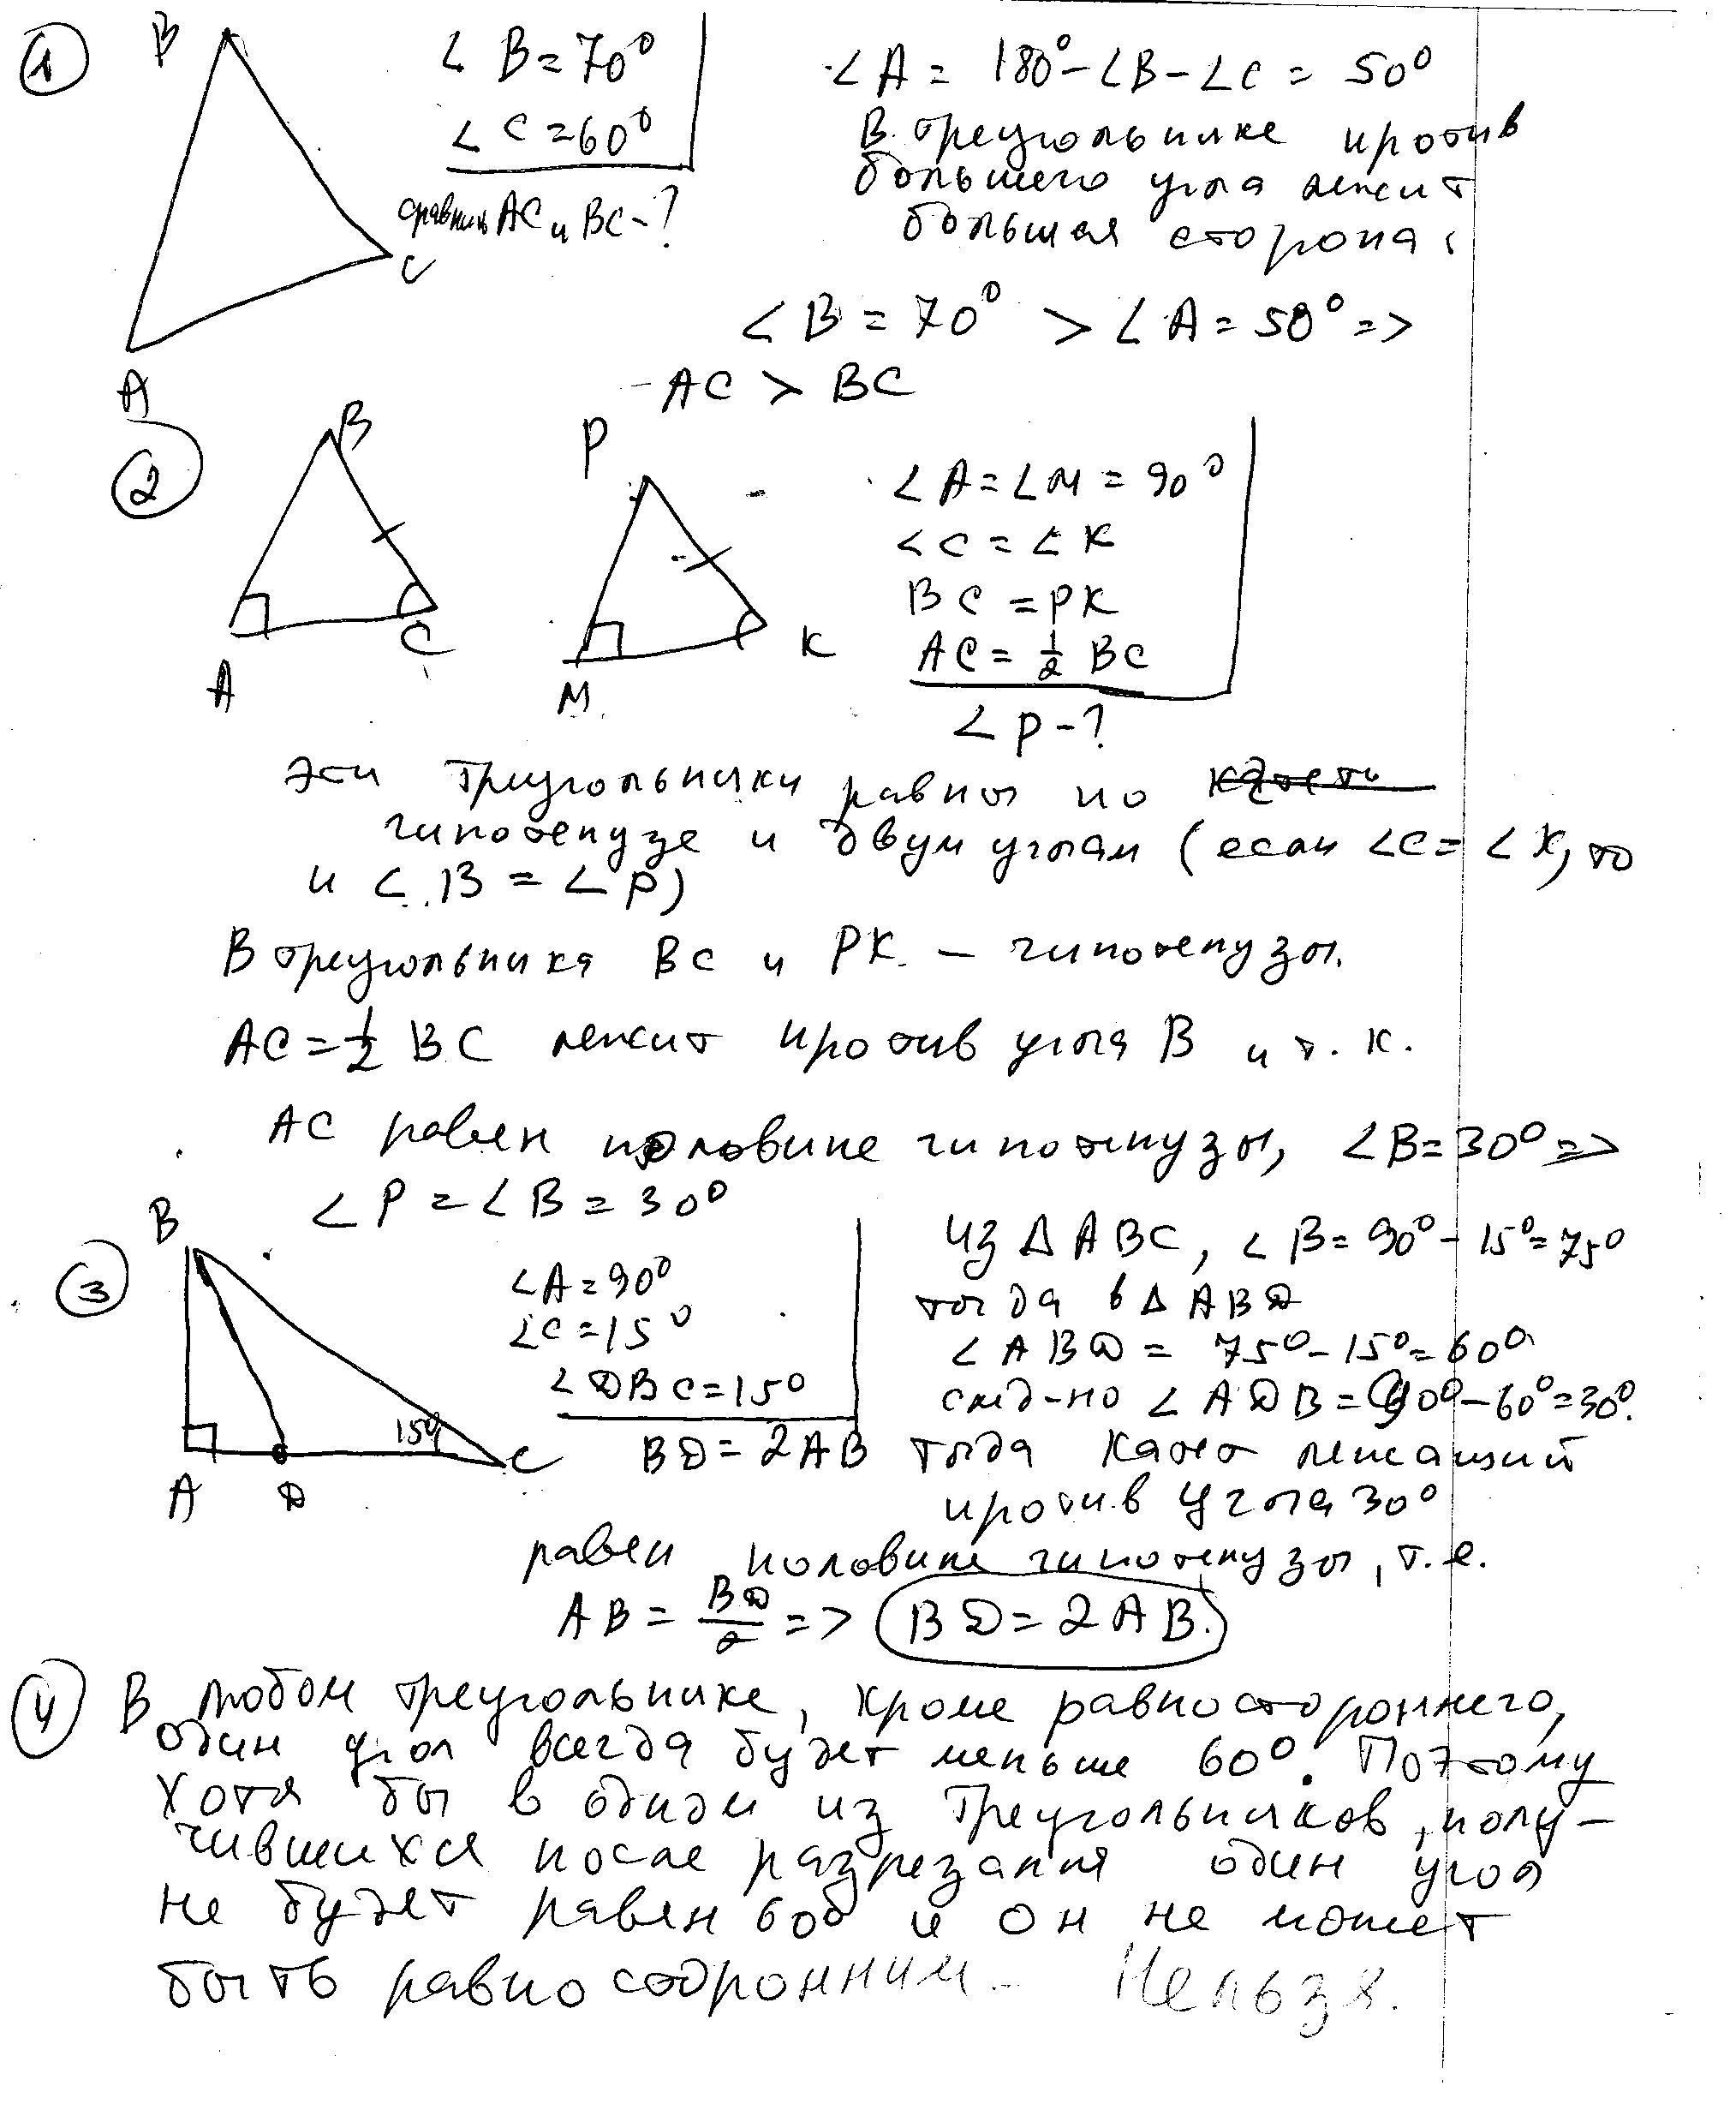 1
B
A
C
∠ B = 70°
∠ C = 60°
сравнить AC и BC - ?
∠ A = 180° - ∠B - ∠C = 50°
В треугольнике против
большего угла лежит
большая сторона:
∠ B = 70° > ∠ A = 50° =>
AC > BC
2
B
A
C
P
M
K
∠ A = ∠ M = 90°
∠ C = ∠ K
BC = PK
AC = 1/2 BC
∠ P - ?
Эти треугольники равны по
гипотенузе и двум углам (если ∠C = ∠ K, то
и ∠ B = ∠ P)
В треугольника BC и PK - гипотенузы.
AC = 1/2 BC лежит против угла B и т. к.
AC равен половине гипотенузы, ∠ B = 30° =>
∠ P = ∠ B = 30°
3
B
A
D
C
15°
∠ A = 90°
∠ C = 15°
∠ DBC = 15°
BD = 2AB
Из Δ ABC, ∠ B = 90° - 15° = 75°
тогда в Δ ABD
∠ ABD = 75° - 15° = 60°
след-но ∠ ADB = 90° - 60° = 30°.
тогда катет лежащий
против угла 30°
равен половине гипотенузы, т.е.
AB = BD/2 => BD = 2AB.
4 В любом треугольнике, кроме равностороннего,
один угол всегда будет меньше 60°. Поэтому
хотя бы в одном из треугольников, полу-
чившихся после разрезания один угол
не будет равен 60° и он не может
быть равносторонним. Нельзя.